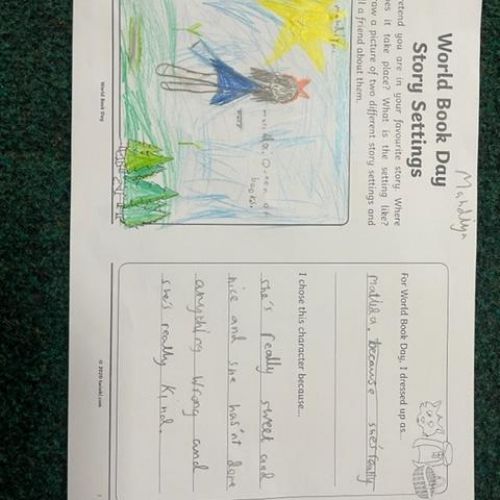 World Book Day
Story Settings
retend you are in your favourite story. Where
es it take place? What is the setting like?
raw a picture of two different story settings and
ll a friend about them.
World Book Day
For World Book Day, I dressed up as...
Matilda, because she's really
I chose this character because...
she's really sweet and
nice and she has'nt done
anything wrong and
she's really kind.
© 2020 twinkl.com